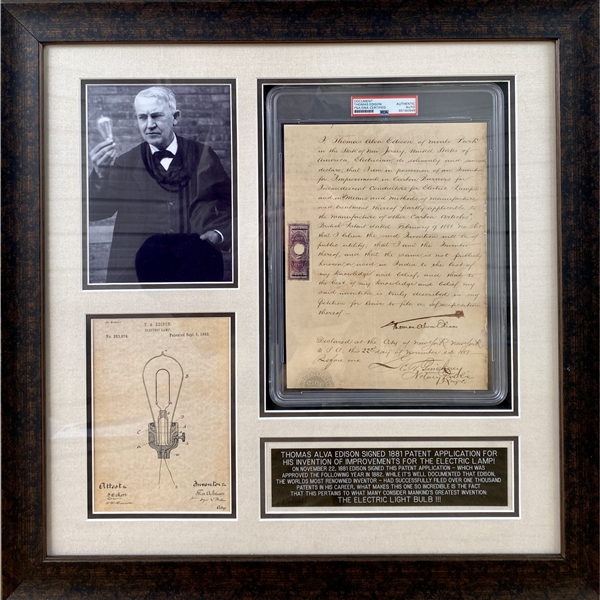 DOCUMENT
THOMAS EDISON
PSA/DNA CERTIFIED
AUTHENTIC
AUTO
I Thomas Alva Edison of Menlo Park
in the State of New Jersey, United States of
America, Electrician do solemnly and
declare, that I am in possession of an Invention
for Improvements in Carbon Burners for
Incandescent Conductors for Electric Lamps
and in Means and methods of manufacture
and treatment thereof partly applicable to
the manufacture of other Carbon Articles
British Patent dated February 9 1881 No
that I believe the said Invention will be of
public utility, that I am the Inventor
thereof, and that the same is not publicly
known or used in India to the best of
my knowledge and belief, and that to
the best of my knowledge and belief my
said invention is truly described in my
petition for leave to file a specification
thereof
Thomas Alva Edison
Declared at the City of New York, New York
U.S.A. this 22nd day of November A.D. 1881
Before me
Notary Public
T. A. EDISON.
ELECTRIC LAMP.
No.
Patented Sept.
Attest
Inventor
THOMAS ALVA EDISON SIGNED 1881 PATENT APPLICATION FOR
HIS INVENTION OF IMPROVEMENTS FOR THE ELECTRIC LAMP!
ON NOVEMBER 22, 1881 EDISON SIGNED THIS PATENT APPLICATION – WHICH WAS
APPROVED THE FOLLOWING YEAR IN 1882. WHILE IT'S WELL DOCUMENTED THAT EDISON,
THE WORLDS MOST RENOWNED INVENTOR – HAD SUCCESSFULLY FILED OVER ONE THOUSAND
PATENTS IN HIS CAREER, WHAT MAKES THIS ONE SO INCREDIBLE IS THE FACT
THAT THIS PERTAINS TO WHAT MANY CONSIDER MANKIND'S GREATEST INVENTION:
THE ELECTRIC LIGHT BULB !!!